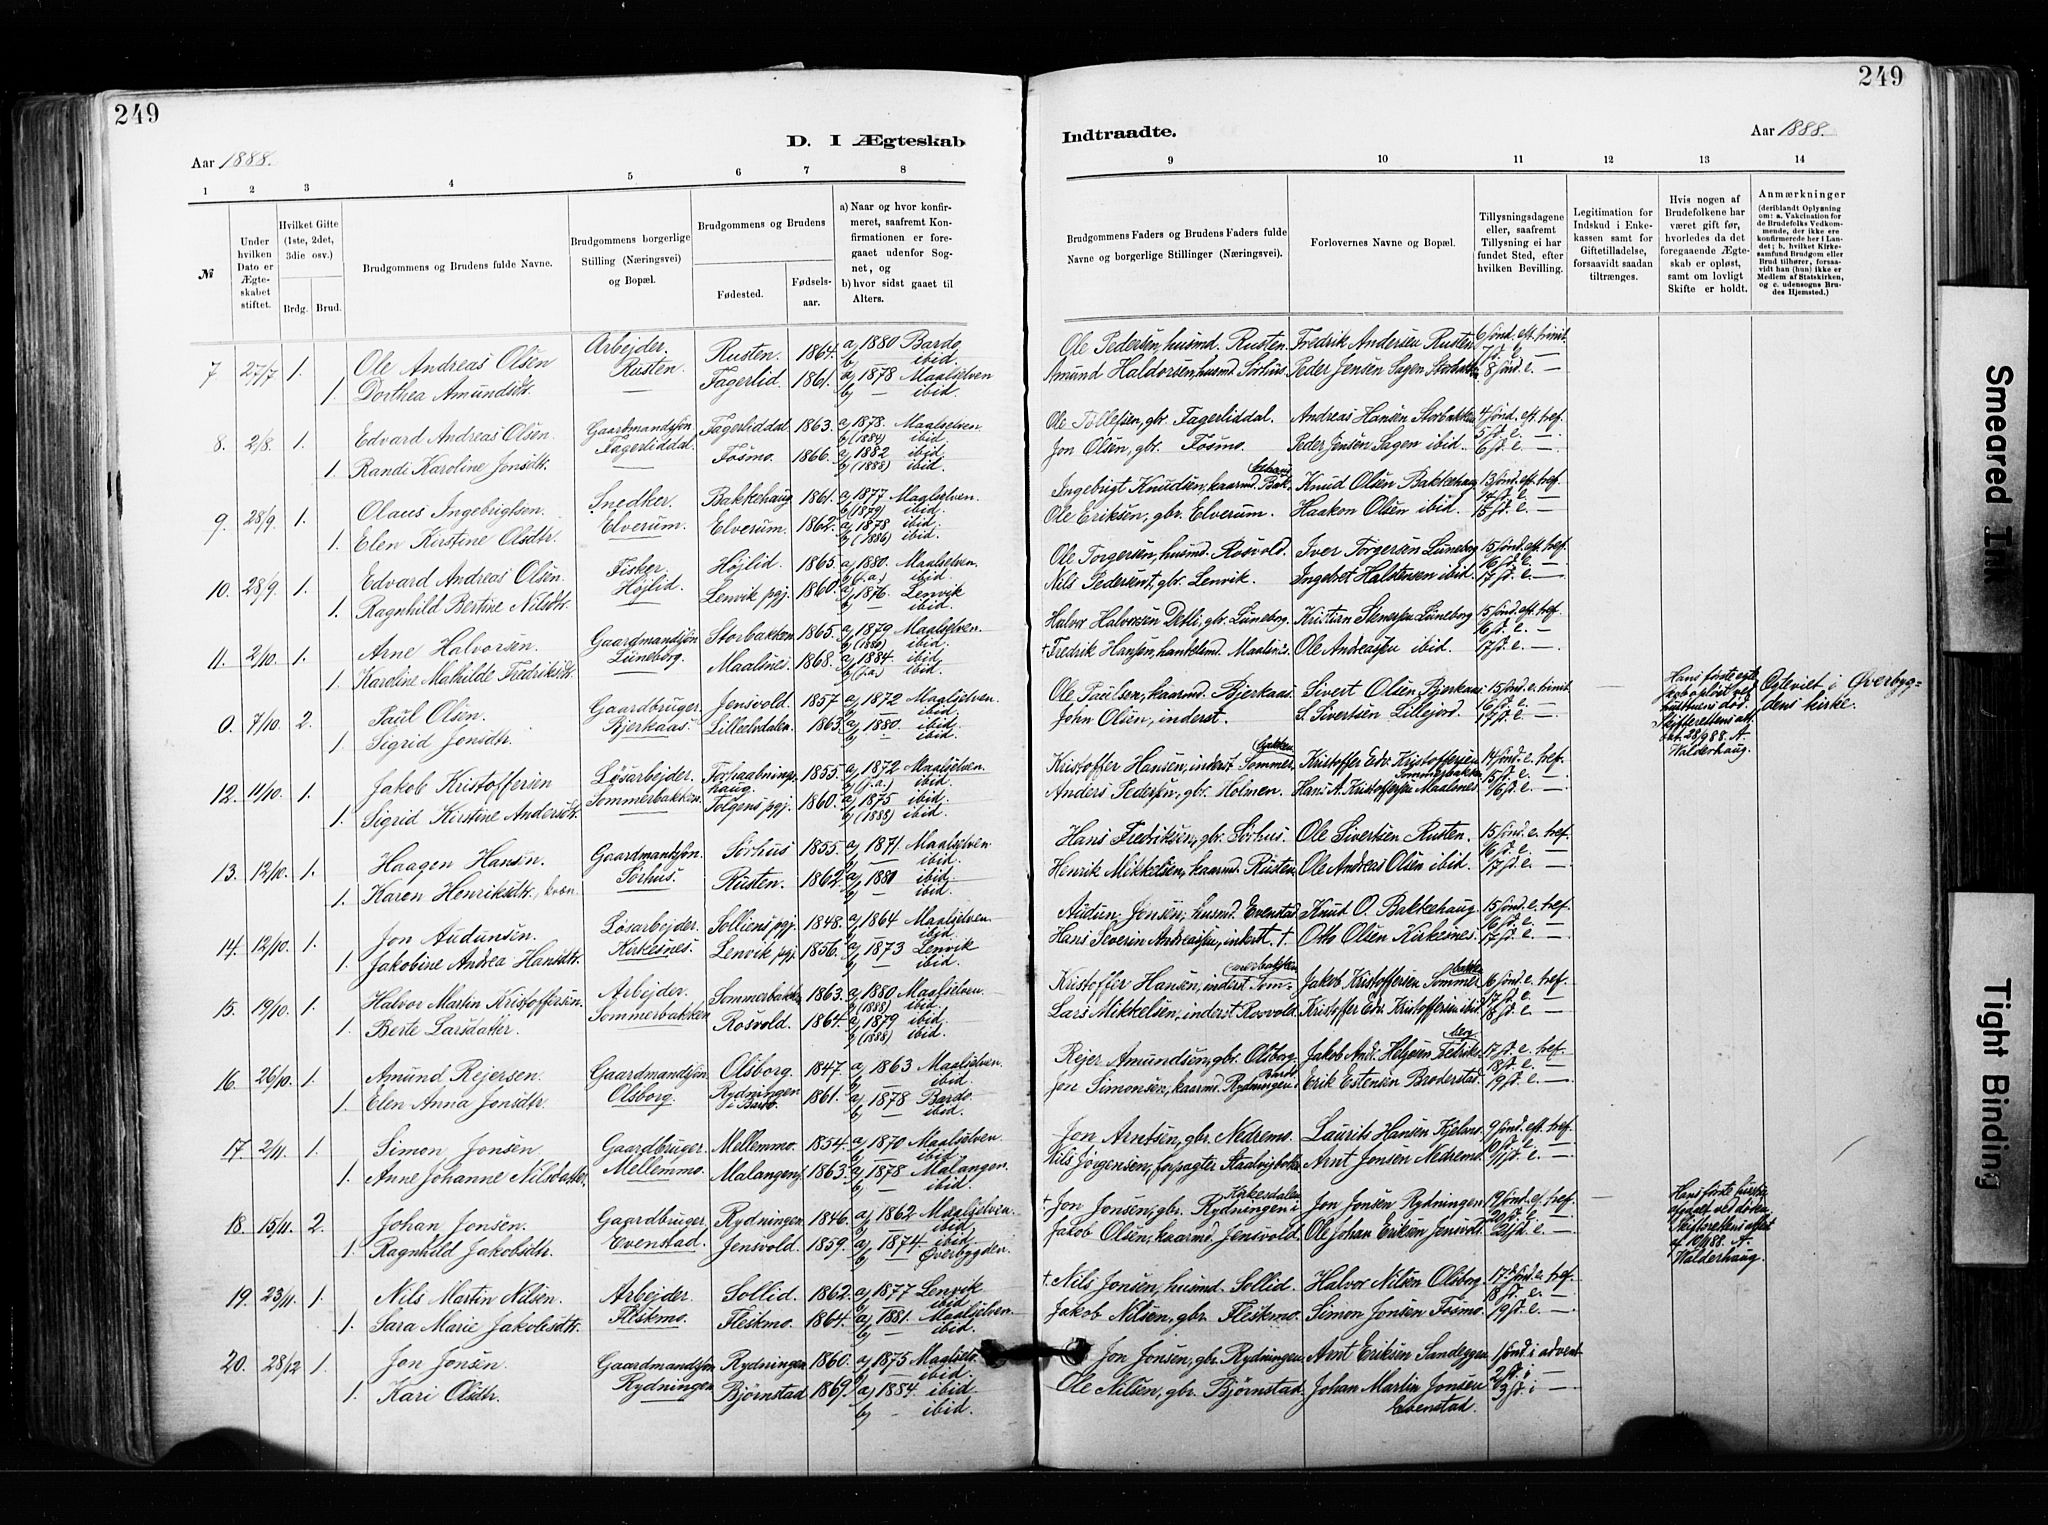 249
249
D. I Ægteskab
Indtraadte.
Aar 1888.
Aar 1888.
1 2 3 4 5 6 7 8
9 10 11 12 13 14
№
Under hvilken Dato er Ægteskabet stiftet.
Hvilket Gifte (1ste, 2det, 3die osv.)
Brdg. Brud.
Brudgommens og Brudens fulde Navne.
Brudgommens borgerlige Stilling (Næringsvei) og Bopæl.
Brudgommens og Brudens
Fødested.
Fødselsaar.
a) Naar og hvor konfirmeret, saafremt Konfirmationen er foregaaet udenfor Sognet, og
b) hvor sidst gaaet til Alters.
Brudgommens Faders og Brudens Faders fulde Navne og borgerlige Stillinger (Næringsvei).
Forlovernes Navne og Bopæl.
Tillysningsdagene eller, saafremt Tillysning ei har fundet Sted, efter hvilken Bevilling.
Legitimation for Indskud i Enkekassen samt for Giftetilladelse, forsaavidt saadan tiltrænges.
Hvis nogen af Brudefolkene har været gift før, hvorledes da det foregaaende Ægteskab er opløst, samt om lovligt Skifte er holdt.
Anmærkninger
(deriblandt Oplysning om: a. Vakcination for de Brudefolks Vedkommende, der ikke ere konfirmerede her i Landet; b. hvilket Kirkesamfund Brudgom eller Brud tilhører, forsaavidt han (hun) ikke er Medlem af Statskirken, og c. udensogns Brudes Hjemsted.)
7 27/7 1. Ole Andreas Olsen Arbejder. Rusten. Rusten. 1864. a) 1880 Bardo b) — ibid. Ole Pedersen, husmd. Rusten Fredrik Andersen Rusten 6 sønd. eft. trinit.
1. Dorthea Amundsdtr. — Fagerlid. 1861. a) 1878 Maalselven b) — ibid. Amund Haldorsen, husmd. Sørhus. Peder Jensen Sagen 7 d. e. — 8 sønd. e. —
8. 2/8. 1. Edvard Andreas Olsen. Gaardmandsøn Fagerliddal. Fagerliddal. 1863. a) 1878. Maalselven b) (1884) ibid. Ole Tollefsen, gbr. Fagerliddal. Andreas Hansen Storbakken 4 sønd. eft. tref.
1. Randi Karoline Jonsdtr. — Fosmo. 1866. a) 1882 ibid. b) (1888) ibid. Jon Olsen, gbr. Fosmo. Peder Jensen Sagen ibid. 5 d. e. — 6 d. e. —
9. 28/9. 1. Olaus Ingebrigtsen. Snedker. Elverum. Bakkehaug 1861. a) 1877 Maalselven. b) (1879) ibid. Ingebrigt Knudsen, kaarmd. Bakkehaug Knud Olsen Bakkehaug 13 sønd. eft. tref.
1. Elen Kirstine Olsdtr. — Elverum. 1862. a) 1878 ibid. b) (1886) ibid. Ole Eriksen, gbr. Elverum. Haakon Olsen ibid. 14 d. e. — 15 d. e. —
10. 28/9. 1. Edvard Andreas Olsen. Fisker. Højlid. Højlid. 1865. a) 1880. Maalselven. b) (f.a.) ibid. Ole Torgersen, husmd. Rosvold. Iver Torgersen Lüneborg 15 sønd. eft. tref.
1. Ragnhild Bertine Nilsdtr. — Lenvik pgj. 1860. a) 1876. Lenvik b) — ibid. Nils Pedersen †, gbr. Lenvik. Ingebret Halstensen ibid. 16 d. e. — 17 d. e. —
11. 2/10. 1. Arne Halvorsen. Gaardmandsøn Lüneborg. Storbakken 1865. a) 1879. Maalselven. b) (1880) ibid. Halvor Halvorsen Detli, gbr. Lüneborg. Kristian Stenersen Lüneborg 15 sønd. eft. tref.
1. Karoline Mathilde Fredriksdtr. — Maalsnes. 1868. a) 1884. ibid. b) (f.a.) ibid. † Fredrik Hansen, handelsmd. Maalsnes. Ole Andreassen ibid. 16 d. e. — 17 d. e. —
0. 7/10. 2. Paul Olsen. Gaardbruger Bjerkaas. Jensvold. 1857 a) 1872 Maalselven. b) — ibid. Ole Paulsen, kaarmd. Bjerkaas Sivert Olsen Bjerkaas 15 sønd. e. trinit. — Hans første egteskab opløst ved hustruens død. Skifterettens att. dat. 28/9 88. A. Walderhaug. Egteviet i Øverbygdens kirke.
1. Sigrid Jonsdtr. — Lilleelvdalen. 1863. a) 1880. ibid. b) — ibid. John Olsen, inderst. S. Sivertsen Lillejord. 16 d. e. — 17 d. e. —
12. 11/10. 1. Jakob Kristoffersen Løsarbejder. Sommerbakken. Forhaabningshaug. 1855. a) 1872 Maalselven. b) (f.a.) ibid. Kristoffer Hansen, inderst Sommerbakken. Kristoffer Edv. Kristoffersen Sommerbakken 14 sønd. e. tref.
1. Sigrid Kirstine Andersdtr. — Tolgens pgj. 1860. a) 1875 ibid. b) (1888) ibid. Anders Pedersen, gbr. Holmen. Hans A. Kristoffersen Maalsnes. 15 d. e. — 16 d. e. —
13. 12/10. 1. Haagen Hansen. Gaardmandsøn. Sørhus. Sørhus 1855. a) 1871. Maalselven. b) — ibid. Hans Fredriksen, gbr. Sørhus. Ole Sivertsen Rusten. 15 sønd. e. tref.
1. Karen Henriksdtr., kvæn. — Rusten. 1862. a) 1880 ibid. b) — ibid. Henrik Mikkelsen, kaarmd. Rusten. Ole Andreas Olsen ibid. 16 d. e. — 17 d. e. —
14. 12/10. 1. Jon Audunsen. Løsarbejder Kirkesnes. Solliens pgj. 1848. a) 1864 Maalselven. b) — ibid. Audun Jonsen, husmd. Evenstad. Knud O. Bakkehaug. 15 sønd. e. tref.
1. Jakobine Andrea Hansdtr. — Lenvik pgj. 1856. a) 1873 Lenvik b) — ibid. Hans Severin Andreassen, inderst. † Otto Olsen Kirkesnes. 16 d. e. — 17 d. e. —
15. 19/10. 1. Halvor Martin Kristoffersen. Arbejder. Sommerbakken. Sommerbakken 1863. a) 1880 Maalselven. b) (1888) ibid. Kristoffer Hansen, inderst Sommerbakken Jakob Kristoffersen Sommerbakken 16 sønd. e. tref.
1. Berte Larsdatter. — Rosvold. 1864. a) 1879 ibid. b) (1888) ibid. Lars Mikkelsen, inderst Rosvold. Kristoffer Edv. Kristoffersen ibid. 17 d. e. — 18 d. e. —
16. 26/10. 1. Amund Rejersen. Gaardmandsøn Olsborg. Olsborg. 1847. a) 1863 Maalselven. b) — ibid. Rejer Amundsen, gbr. Olsborg. Jakob And. Helgesen Fedriksberg 17 d. e. tref.
1. Elen Anna Jonsdtr. — Rydningen i Bardo. 1861. a) 1878 Bardo. b) — ibid. Jon Simonsen, kaarmd. Rydningen i Bardo. Erik Estensen Broderstad. 18 d. e. — 19 d. e. —
17. 2/11. 1. Simon Jonsen Gaardbruger. Mellemmo. Mellemmo. 1854. a) 1870 Maalselven. b) — ibid. Jon Arntsen, gbr. Nedremo. Laurits Hansen 9 sønd. eft. tref.
1. Anne Johanne Nilsdatter. — Malangen. 1863. a) 1878 Malangen. b) — ibid. Nils Jørgensen, forpagter Arnt Jonsen Nedremo. 10 d. e. — 11 d. e. —
18. 15/11. 2. Johan Jonsen. Gaardbruger. Evenstad. Rydningen 1846. a) 1862 Maalselven. b) — ibid. † Jon Jonsen, gbr. Rydningen i Kirkesdalen Jon Jonsen Rydningen 19 sønd. ef. tref. — Hans første hustru afgaaet ved døden. Skifterettens attest af 10/11 88. A. Walderhaug.
1. Ragnhild Jakobsdtr. — Jensvold. 1859. a) 1874. ibid. b) — Øverbygden. Jakob Olsen, kaarmd. Jensvold. Ole Johan Eriksen Jensvold. 20 d. e. — 21 d. e. —
19. 23/11. 1. Nils Martin Nilsen. Arbejder Fleskmo. Sollid. 1862. a) 1877 Lenvik b) — ibid. † Nils Jonsen, husmd. Sollid. Halvor Nilsen Olsborg. 17 sønd. e. tref.
1. Sara Marie Jakobsdtr. — Fleskmo. 1864. a) 1881. Maalselven. b) — ibid. Jakob Nilsen, gbr. Fleskmo. Simon Jonsen Fosmo. 18 d. e. — 19 d. e. —
20. 28/12 1. Jon Jonsen. Gaardmandsøn Rydningen Rydningen 1860. a) 1875 Maalselv. b) — ibid. Jon Jonsen, gbr. Rydningen. Arnt Eriksen Sandeggen 1 sønd. i advent
1. Kari Olsdtr. — Bjørnstad 1869. a) 1884. ibid. b) — ibid. Ole Nilsen, gbr. Bjørnstad. Johan Martin Jonsen Evenstad. 2 d. i — 3 d. i —
Smeared Ink
Tight Binding